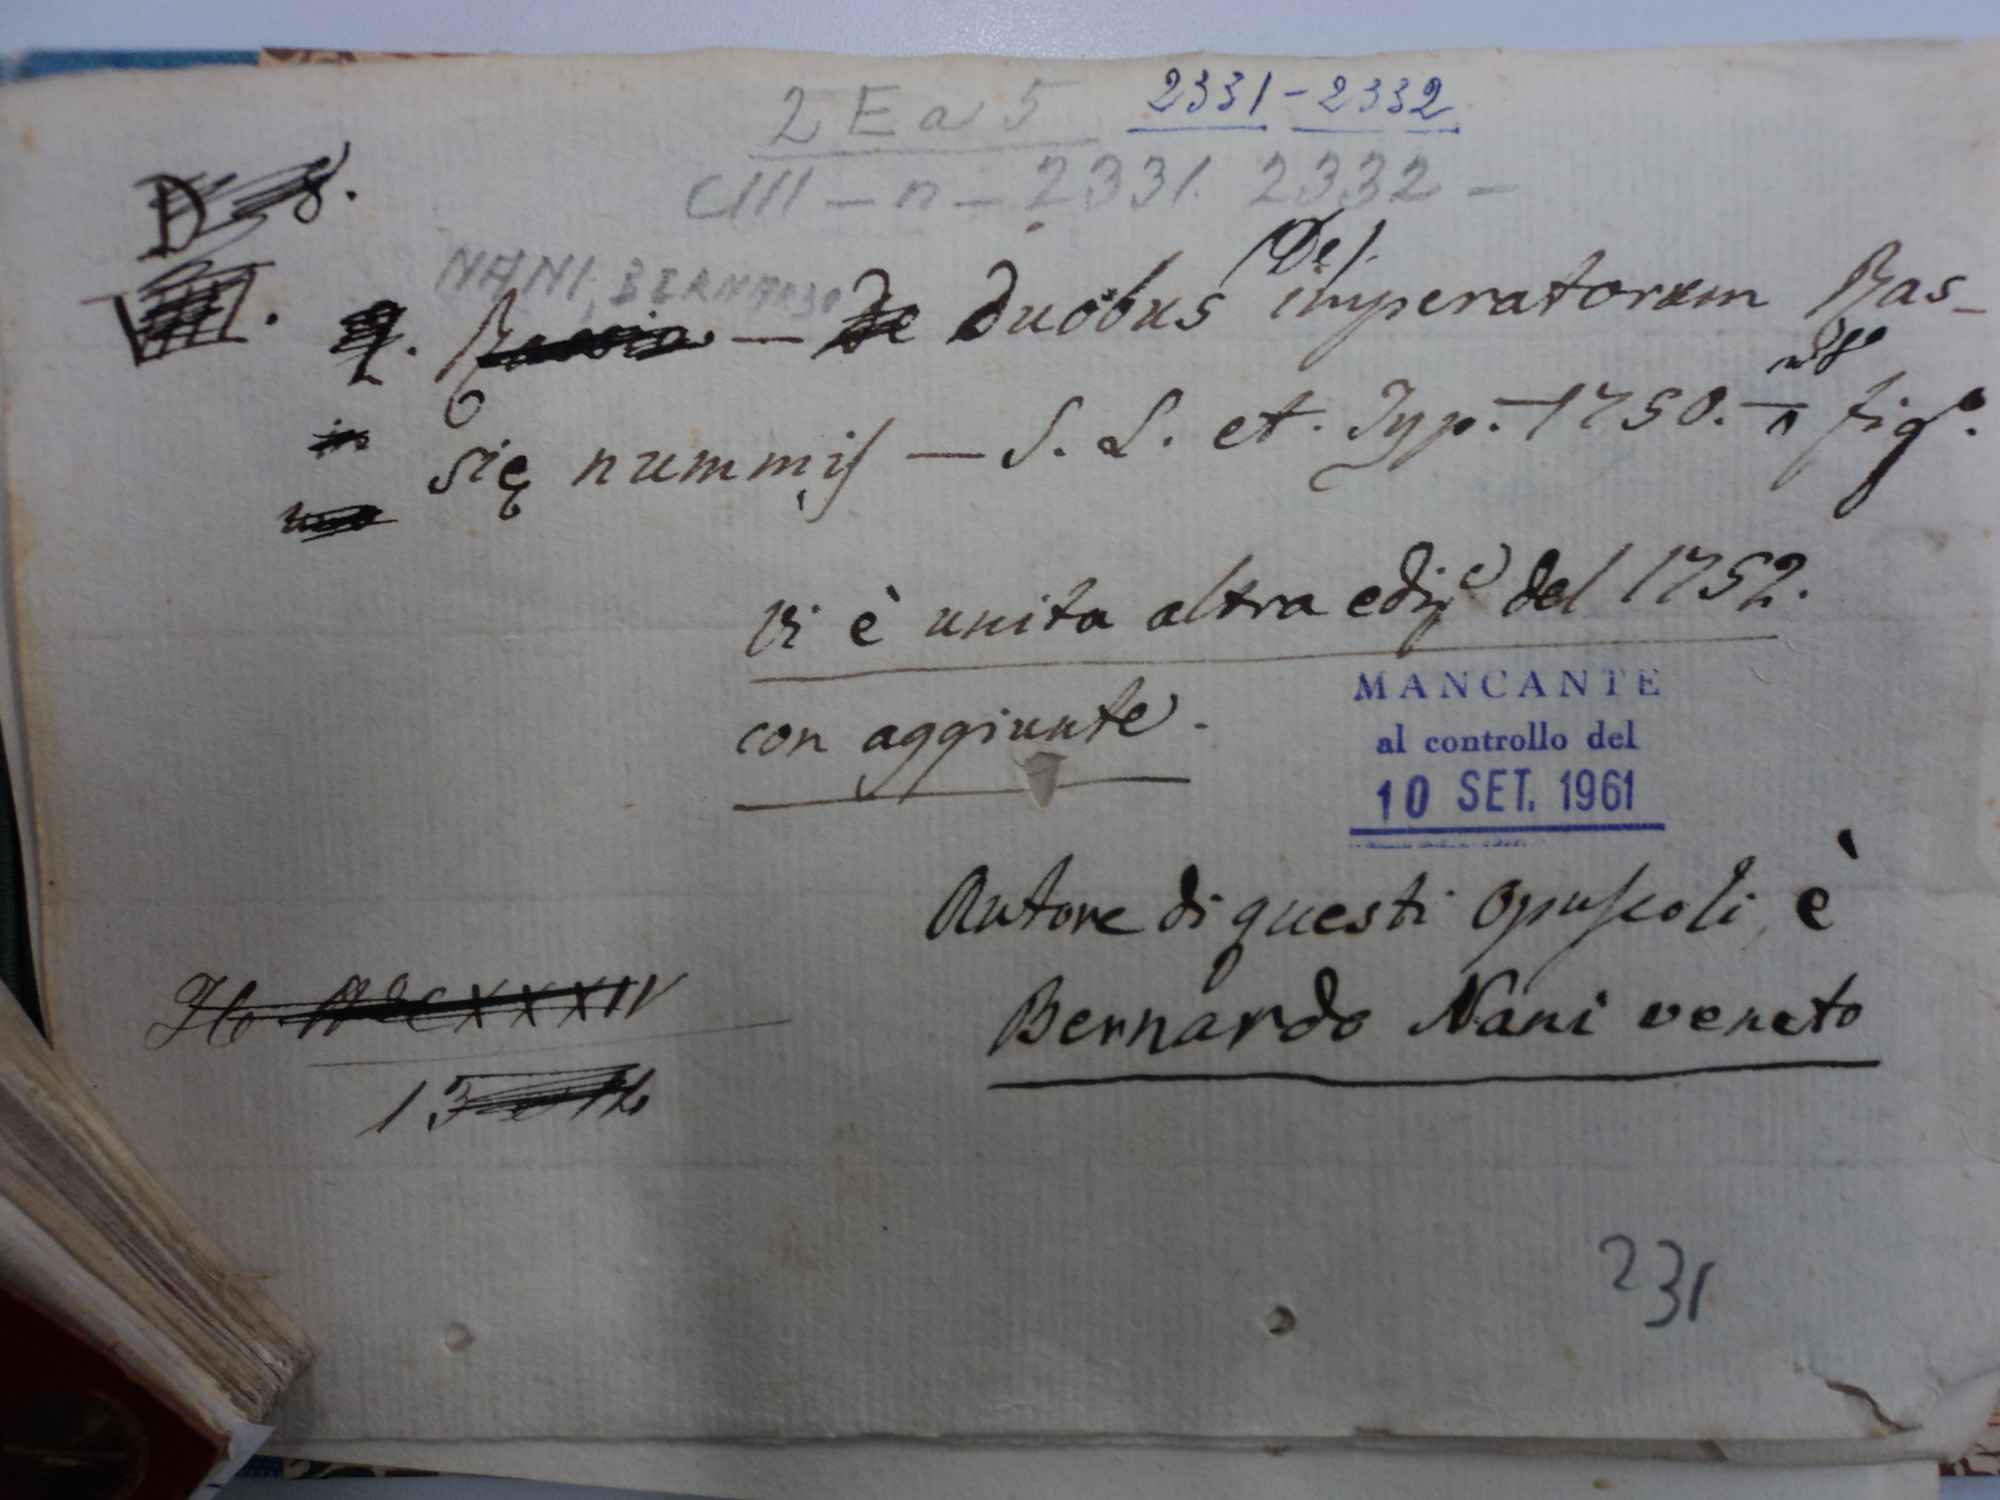 2 E a 5 2331-2332
CIII - n - 2331. 2332 -
D 8.
NANI, BERNARDO
(De).
Duobus imperatorum Ras-
in 8°
się nummis — S. L. et. Typ. — 1750. — fig°.
Vi è unita altra ediz.e del 1752.
con aggiunte.
MANCANTE
al controllo del
10 SET. 1961
Autore di questi opuscoli è
Bernardo Nani veneto
231